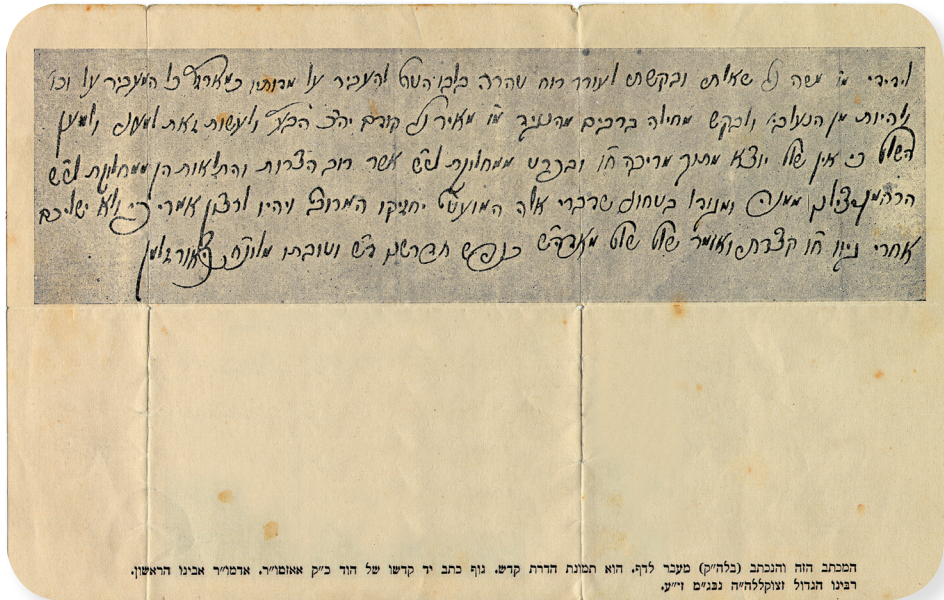 לידידי מו' משה נ"י שאלתו ובקשתו לעורר רוח טהרה בלבו הטוב להעביר על מדותיו כמארז"ל כל המעביר על וכו'
ולהיות מן הנעלבי' ולבקש מחילה ברבים מהנגיד מו' מאיר נ"י קודם יהכ"פ ולעשות זאת למעני ולמען
השלום כי אין שלום יוצא מתוך מריבה ח"ו ובפרט ממחלוקת אשר רוב הצרות והתלאות הן ממחלוקת
הרחמן יצילנו ממנה ומגורל בטחוני שדברי אלה המועטים יחזיקו המרובה ויהיו לרצון אמרי פי ולא ישליכם
אחרי גיוו ח"ו קצרתי ואומר שלום שלום כנפש
המכתב הזה והנכתב (בלה"ק) מעבר לדף. הוא תמונת הדרת קדש. גוף כתב יד קדשו של הוד כ"ק אאזמו"ר. אדמו"ר אבינו הראשון.
רבינו הגדול זצוקללה"ה נבג"מ זי"ע.